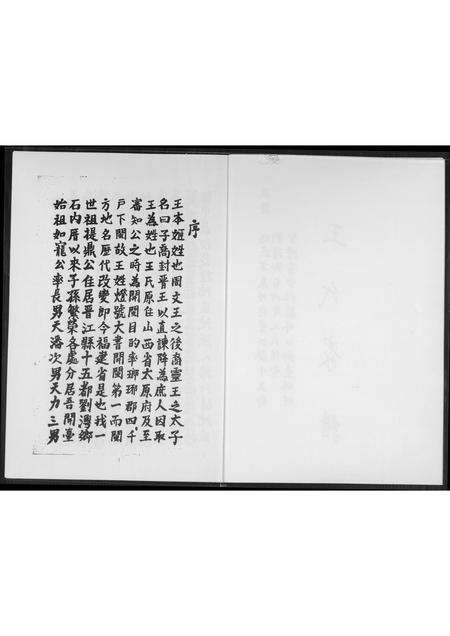 序
王本姬姓也周文王之後裔靈王之太子
名曰子喬封晋王以直諫降為庶人因取
王為姓也王氏原住山西省太原府及至
審知公之時為開閩目的率瑯琊郡四千
戶下閩故王姓燈號大書開閩第一而閩
方地名歷代改變即今福建省是也我一
世祖提鼎公住居晋江縣十五都劉灣鄉
石內厝以來子孫繁榮各處分居吾開臺
始祖如寵公率長男天洛次男天力三男